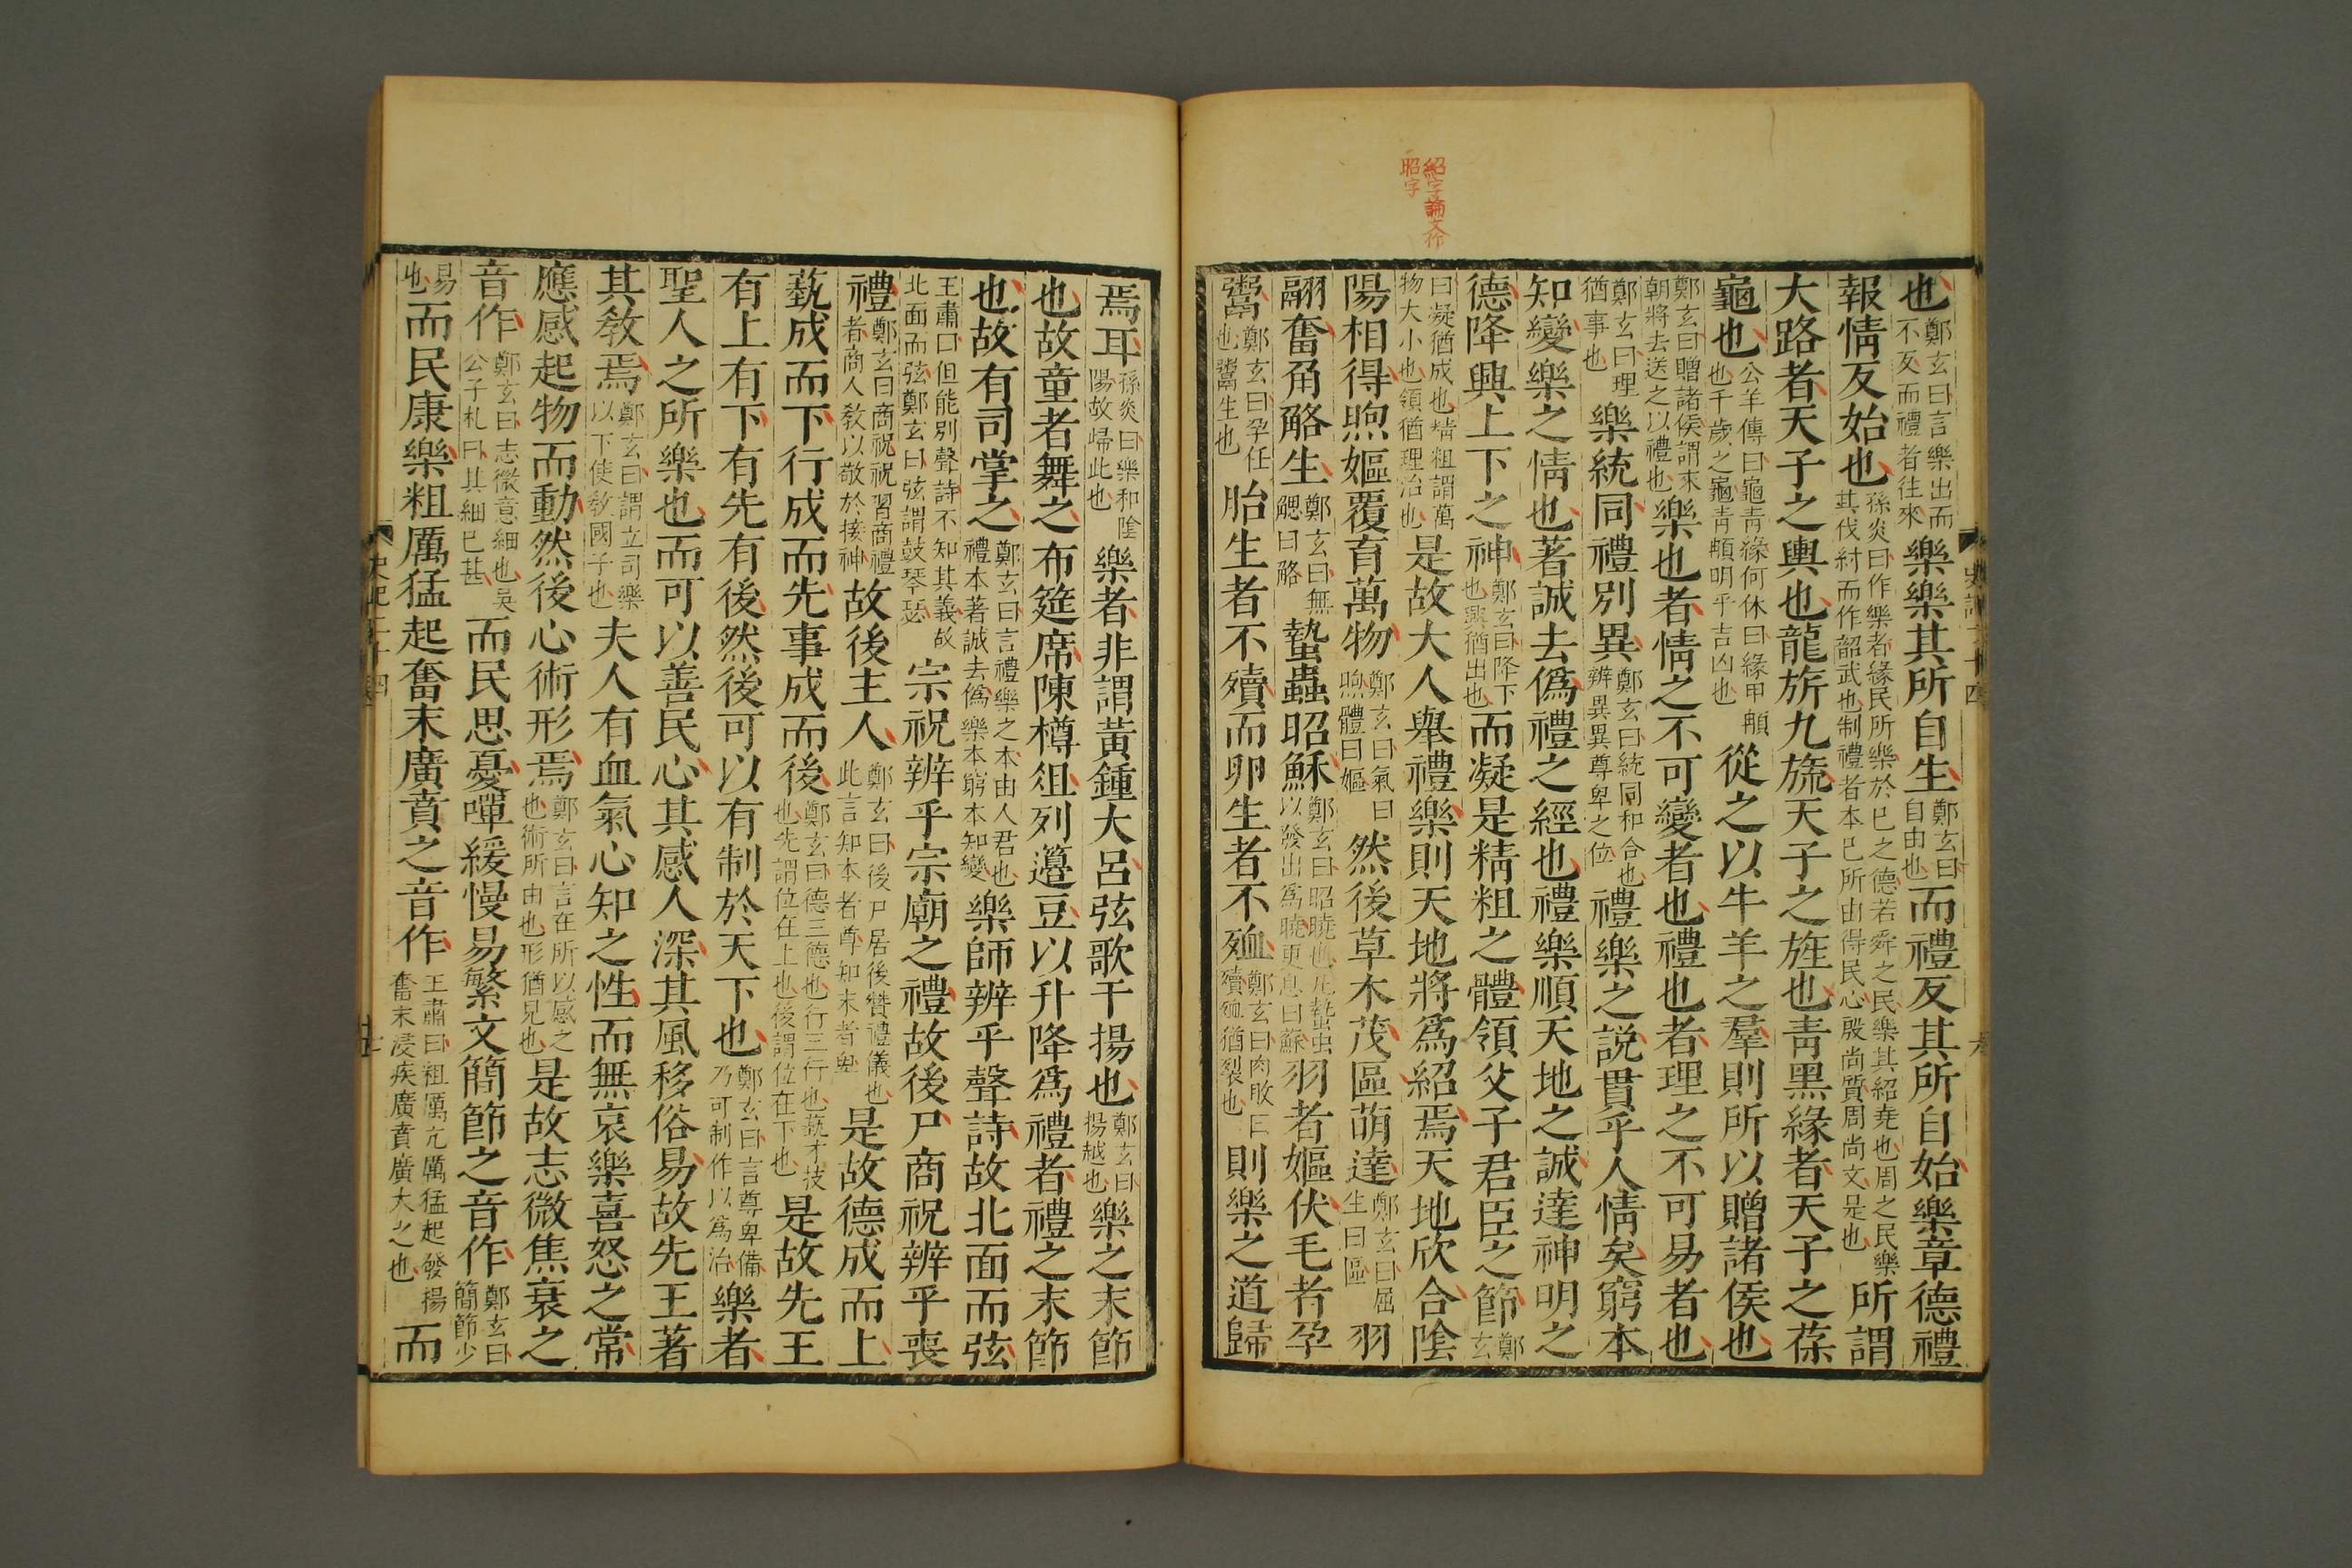 紹字論文作
昭字
也鄭玄曰言樂出而不反而禮者往來樂樂其所自生鄭玄曰自由也而禮反其所自始樂章德禮
報情反始也孫炎曰作樂者緣民所樂於已之德若舜之民樂其紹堯也周之民樂其伐紂而作韶武也制禮者本已所由得民心殷尚質周尚文是也所謂
大路者天子之輿也龍旂九旒天子之旌也青黑緣者天子之葆
龜也公羊傳曰龜青緣何休曰緣甲䫇也千歲之龜青䫇明乎吉凶也從之以牛羊之羣則所以贈諸侯也
鄭玄曰贈諸侯謂來朝將去送之以禮也樂也者情之不可變者也禮也者理之不可易者也
鄭玄曰理猶事也樂統同禮別異鄭玄曰統同和合也辨異異尊卑之位禮樂之說貫乎人情矣窮本
知變樂之情也著誠去僞禮之經也禮樂順天地之誠達神明之
德降興上下之神鄭玄曰降下也興猶出也而凝是精粗之體領父子君臣之節鄭玄
曰凝猶成也精粗謂萬物大小也領猶理治也是故大人舉禮樂則天地將爲紹焉天地欣合陰
陽相得煦嫗覆育萬物鄭玄曰氣曰煦體曰嫗然後草木茂區萌達鄭玄曰屈生曰區羽
翮奮角觡生鄭玄曰無䚡曰觡蟄蟲昭穌鄭玄曰昭曉也凡蟄虫以發出爲曉更息曰蘇羽者嫗伏毛者孕
鬻鄭玄曰孕任也鬻生也胎生者不殰而卵生者不殈鄭玄曰肉敗曰殰殈猶裂也則樂之道歸
焉耳孫炎曰樂和陰陽故歸此也樂者非謂黃鍾大呂弦歌干揚也鄭玄曰揚越也樂之末節
也故童者舞之布筵席陳樽俎列籩豆以升降爲禮者禮之末節
也故有司掌之鄭玄曰言禮樂之本由人君也禮本著誠去僞樂本窮本知變樂師辨乎聲詩故北面而弦
王肅曰但能別聲詩不知其義故北面而弦鄭玄曰弦謂鼓琴瑟宗祝辨乎宗廟之禮故後尸商祝辨乎喪
禮鄭玄曰商祝祝習商禮者商人敎以敬於接神故後主人鄭玄曰後尸居後贊禮儀也此言知本者尊知末者卑是故德成而上
藝成而下行成而先事成而後鄭玄曰德三德也行三行也藝才技也先謂位在上也後謂位在下也是故先王
有上有下有先有後然後可以有制於天下也鄭玄曰言尊卑備乃可制作以爲治樂者
聖人之所樂也而可以善民心其感人深其風移俗易故先王著
其敎焉鄭玄曰謂立司樂以下使敎國子也夫人有血氣心知之性而無哀樂喜怒之常
應感起物而動然後心術形焉鄭玄曰言在所以感之也術所由也形猶見也是故志微焦衰之
音作鄭玄曰志微意細也吳公子札曰其細已甚而民思憂嘽緩慢易繁文簡節之音作鄭玄曰簡節少
易也而民康樂粗厲猛起奮末廣賁之音作王肅曰粗厲亢厲猛起發揚奮末浸疾廣賁廣大之也而